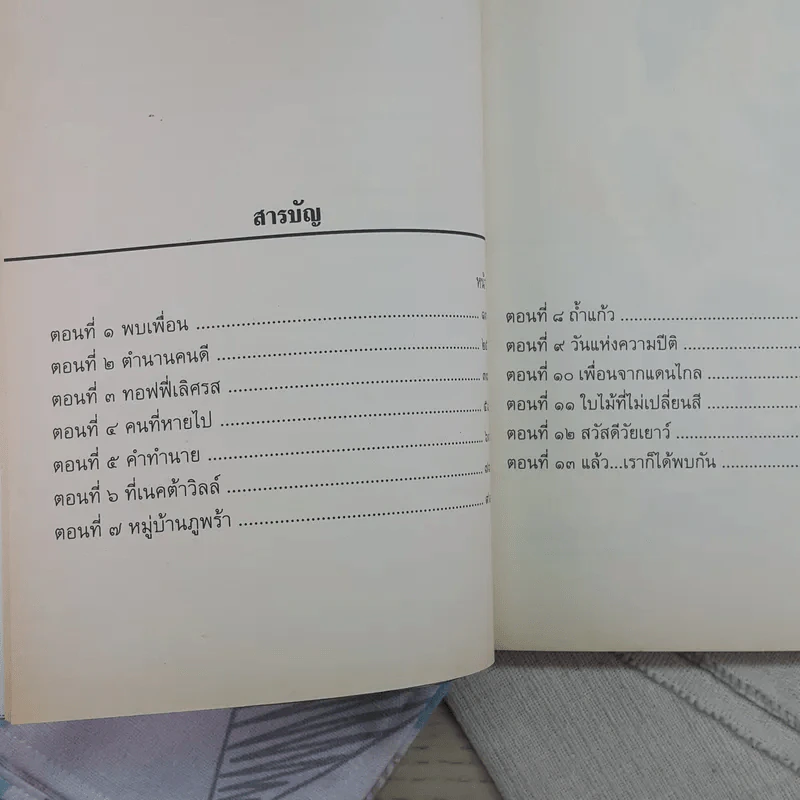 สารบัญ
ตอนที่ ๑ พบเพื่อน
ตอนที่ ๒ ตำนานคนดี
ตอนที่ ๓ ทอฟฟี่เลิศรส
ตอนที่ ๔ คนที่หายไป
ตอนที่ ๕ คำทำนาย
ตอนที่ ๖ ที่เนคต้าวิลล์
ตอนที่ ๗ หมู่บ้านภูพร้า
ตอนที่ ๘ ถ้ำแก้ว
ตอนที่ ๙ วันแห่งความปีติ
ตอนที่ ๑๐ เพื่อนจากแดนไกล
ตอนที่ ๑๑ ใบไม้ที่ไม่เปลี่ยนสี
ตอนที่ ๑๒ สวัสดีวัยเยาว์
ตอนที่ ๑๓ แล้ว...เราก็ได้พบกัน